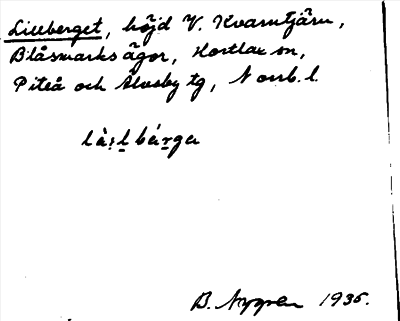 Lillberget, höjd V. Kvarntjärn,
Blåsmarks ägor, Hortlax sn,
Piteå och Älvsby tg, Norrb. l.
B. Nygren 1935.